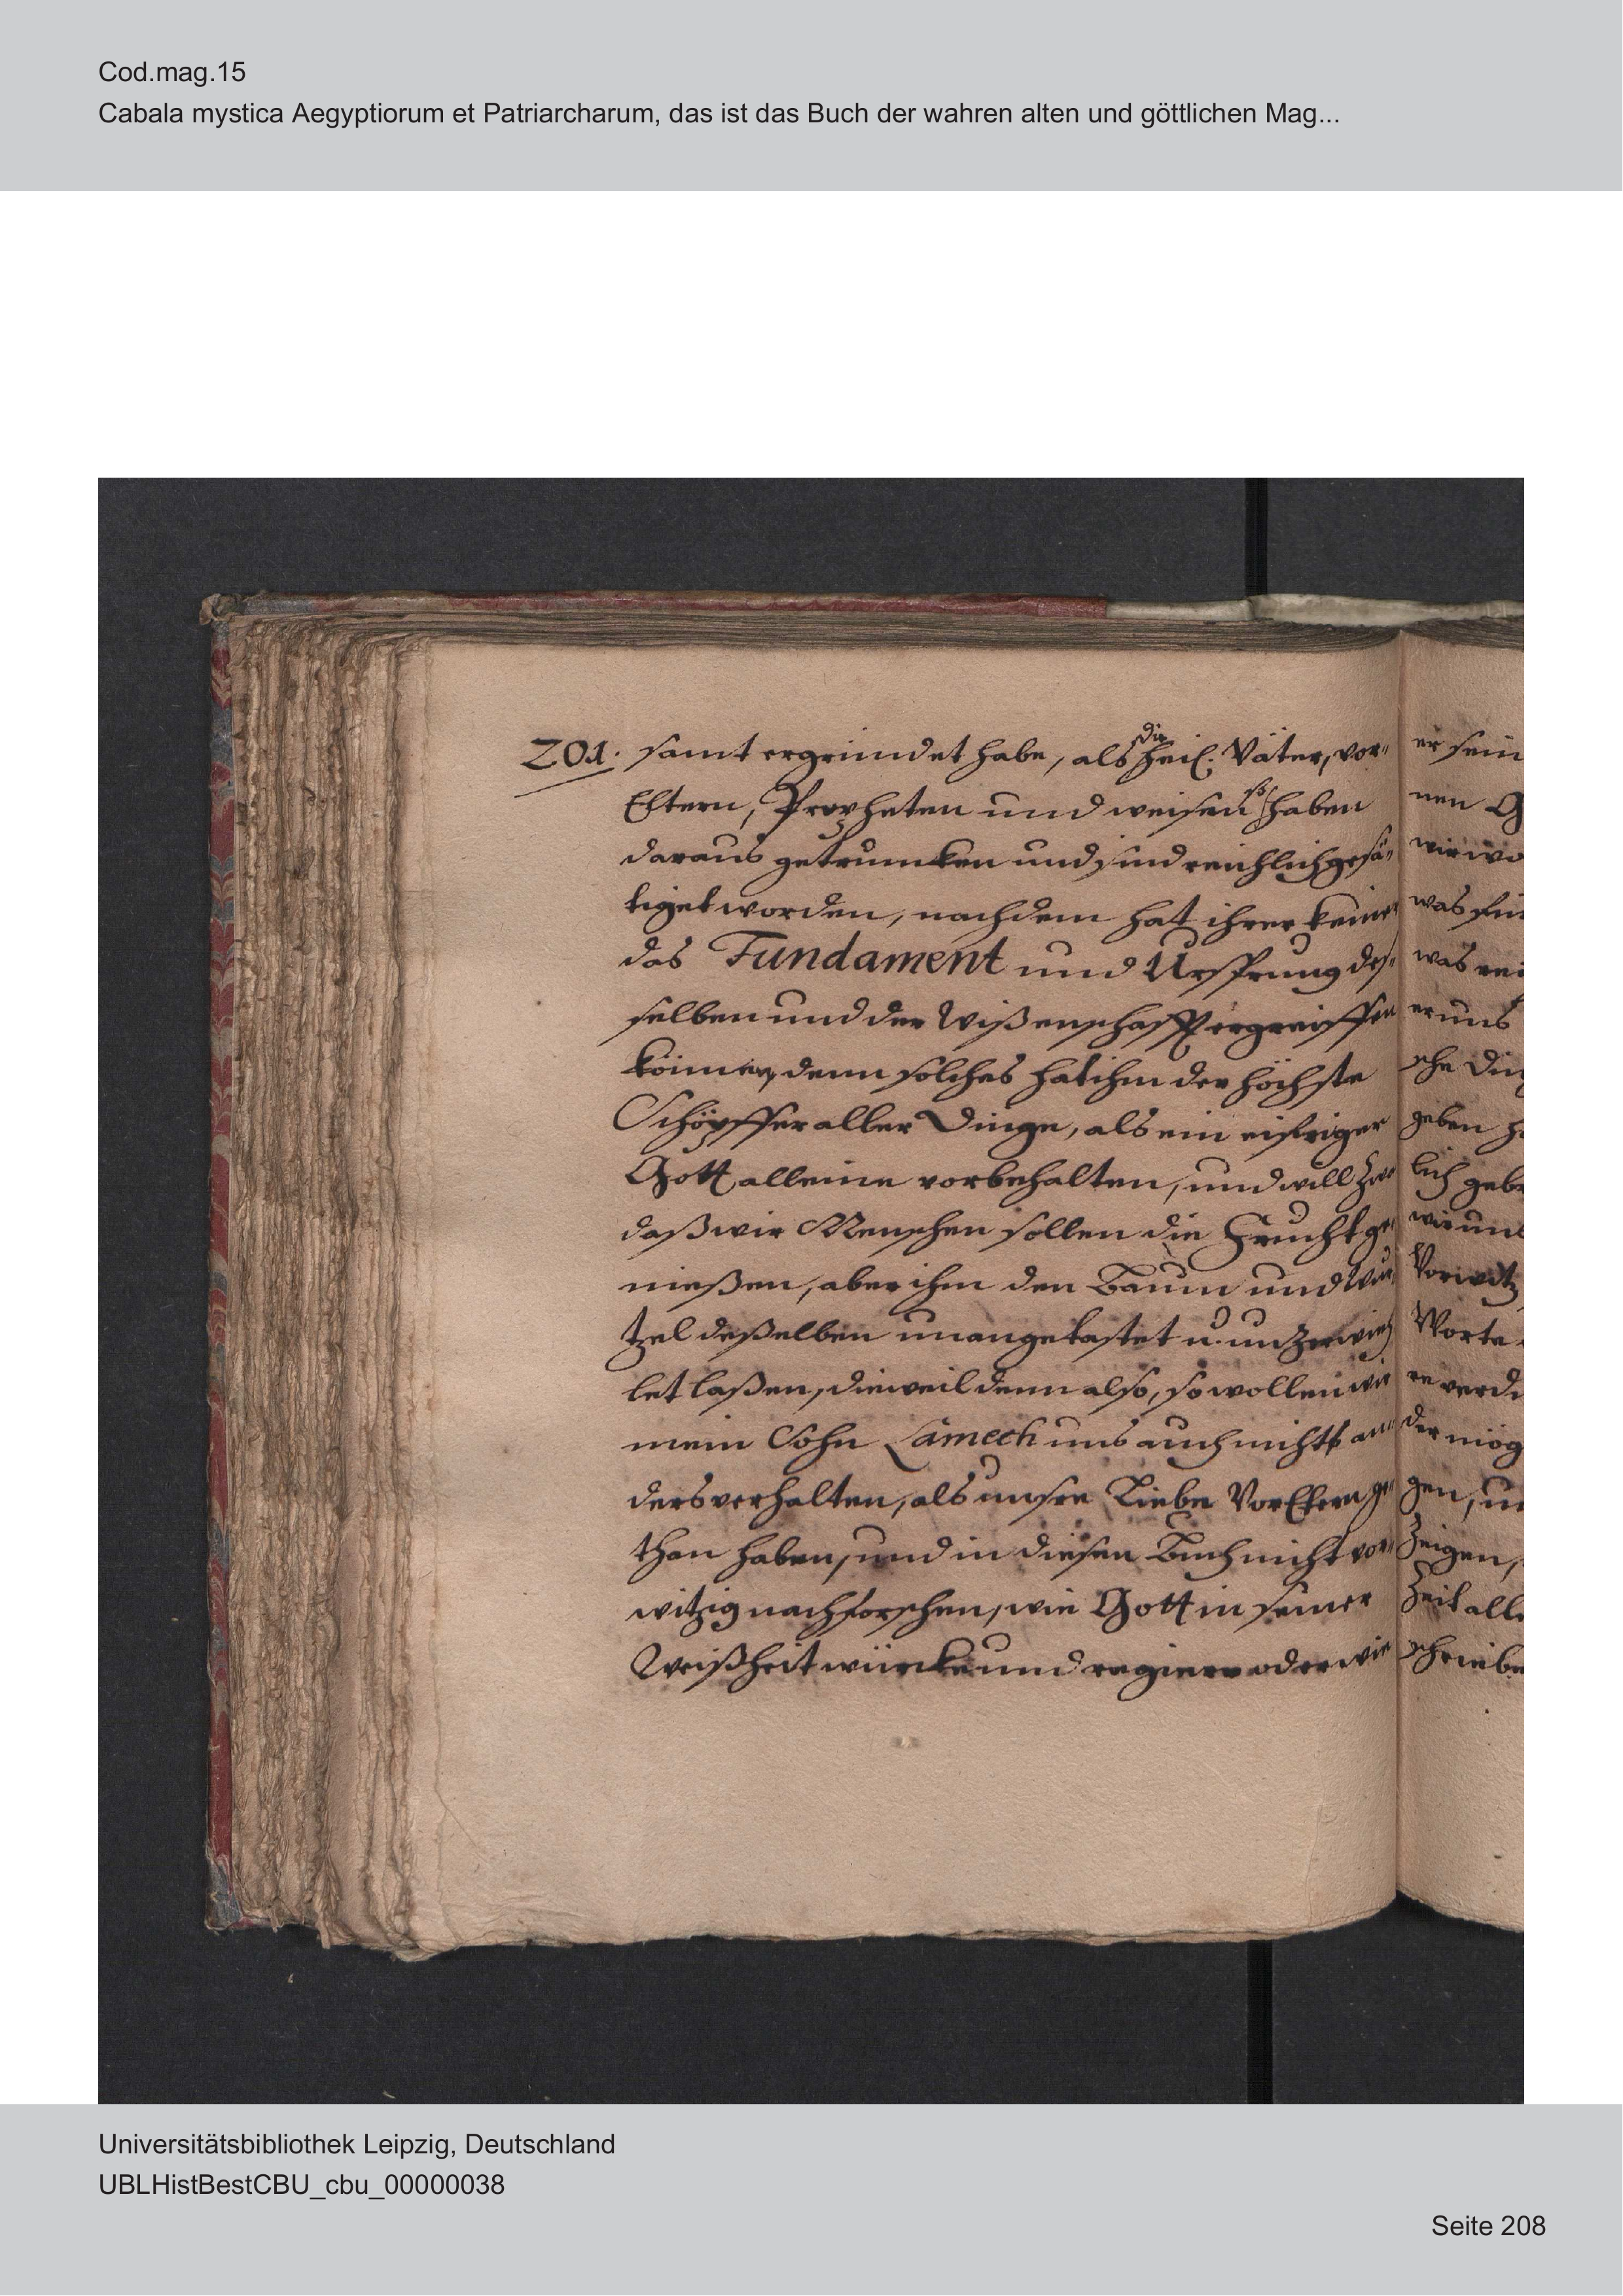 Cod.mag.15
Cabala mystica Aegyptiorum et Patriarcharum, das ist das Buch der wahren alten und göttlichen Mag...
201. samt ergründet habe, als die heil. Väter, vor-
Eltern, Propheten und weisen so haben
daraus getruncken und sind reichlich gesä-
tiget worden, nachdem hat ihrer keiner
das Fundament und Ursprung des-
selben und der Wißenschafft ergreiffen
können, denn solches hat ihm der höchste
Schöpffer aller Dinge, als ein eifriger
Gott alleine vorbehalten, und will
daß wir Menschen sollen die Frucht ge-
nießen, aber ihm den Baum und Wur-
tzel deßelben unangetastet u.
let laßen, dieweil denn also, so wollen wir
mein Sohn Lamech uns auch nicht an-
ders verhalten, als unsre Liebe VorEltern ge-
than haben, und in diesen Buch nicht vor-
witzig nachforschen, wie Gott in seiner
Weißheit würcke und regiere oder wie
er sein
nen G
wir wo
was
was
er uns
sche Din
geben
lich geb
wir uns
Vorwitz
Worte
re
der mög
gen, un
Zeigen,
Zeit all
schriebe
Universitätsbibliothek Leipzig, Deutschland
UBLHistBestCBU_cbu_00000038
Seite 208